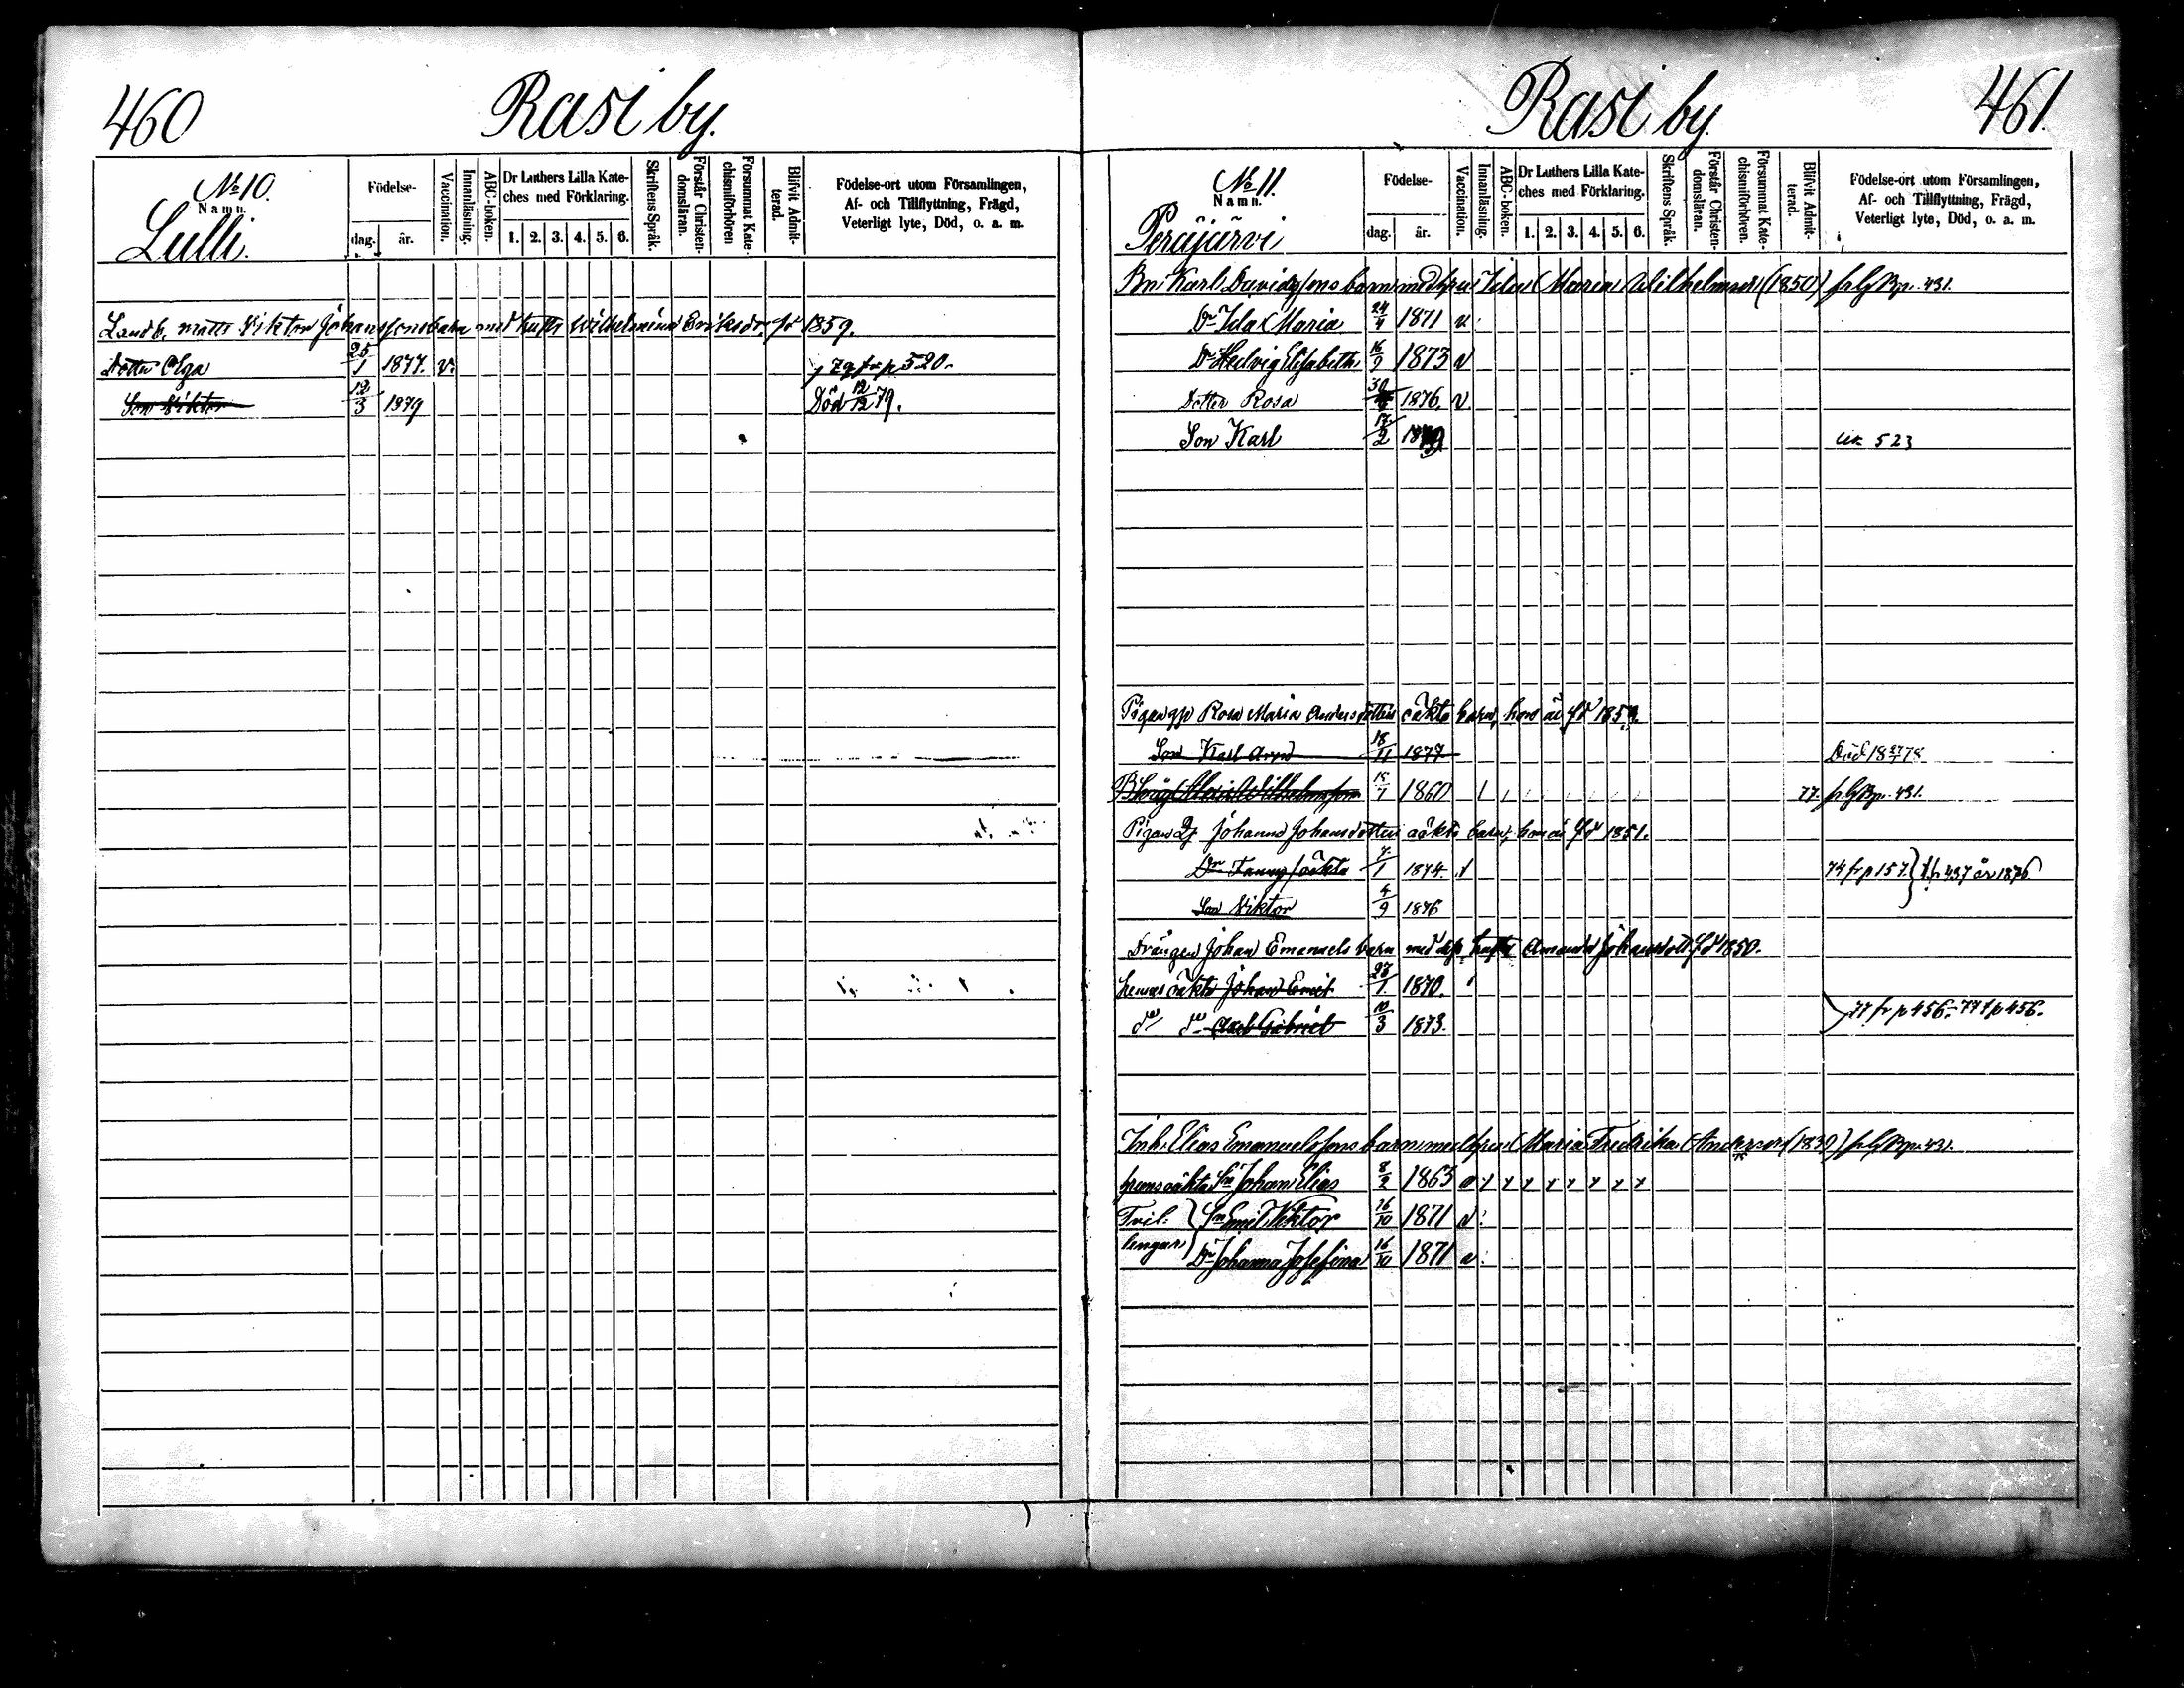 460
Rasi by.
No 10.
Namn.
Lulli.
Födelse-
dag.
år.
Vaccination.
Innanläsning.
ABC-boken.
Dr Luthers Lilla Kate-
ches med Förklaring.
1. 2. 3. 4. 5. 6.
Skriftens Språk.
Förstår Christen-
domsläran.
Försummat Kate-
chismiförhören
Blifvit Admit-
terad.
Födelse-ort utom Församlingen,
Af- och Tillflyttning, Frägd,
Veterligt lyte, Död, o. a. m.
Landb. Matts Viktor Johanssons barn med hustr Wilhelmina Eriksdr fd 1859.
Dotter Olga 25/1 1877. v. 79 fr p 520.
Son Viktor 13/3 1879 Död 12/12 79.
Rasi by.
461.
No 11.
Namn.
Peräjärvi
Födelse-
dag.
år.
Vaccination.
Innanläsning.
ABC-boken.
Dr Luthers Lilla Kate-
ches med Förklaring.
1. 2. 3. 4. 5. 6.
Skriftens Språk.
Förstår Christen-
domsläran.
Försummat Kate-
chismiförhören.
Blifvit Admit-
terad.
Födelse-ort utom Församlingen,
Af- och Tillflyttning, Frägd,
Veterligt lyte, Död, o. a. m.
Bn Karl Davidssons barn med hru Ida Maria Wilhelmsd (1850) 431.
Dr Ida Maria 24/4 1871 v.
Dr Hedvig Elisabeth 16/9 1873 v
Dotter Rosa 30 1876. v
Son Karl 17/2 523
Pigan Rosa Maria Andersdotters oäkta barn, hon är fd
Son Karl 18/11 1877 Död 78
Wilhelmsson 15/7 1860 77. 431.
Pigan Johanna Johansdotters oäkta barn, hon är fd 1851.
Dr Fanny oäkta 7/1 1874. 74 fr p 157. t. p 437 år 1876
Son Viktor 4/9 1876
Drängen Johan Emanuels barn med hustr Amanda Johansdott. fd 1850.
hennes oäkta Johan Emil 1870.
do do Axel Gabriel 10/3 1873. 77 fr p 456.- 77 t p 456.
Inh. Elias Emanuelssons barn med hru Maria Fredrika Andersd (1839) 431.
hrens oäkta Sn Johan Elias 8/2 1863
Tvil: Sn Emil Viktor 16/10 1871 v.
lingar Dr Johanna Josefina 16/10 1871 v.